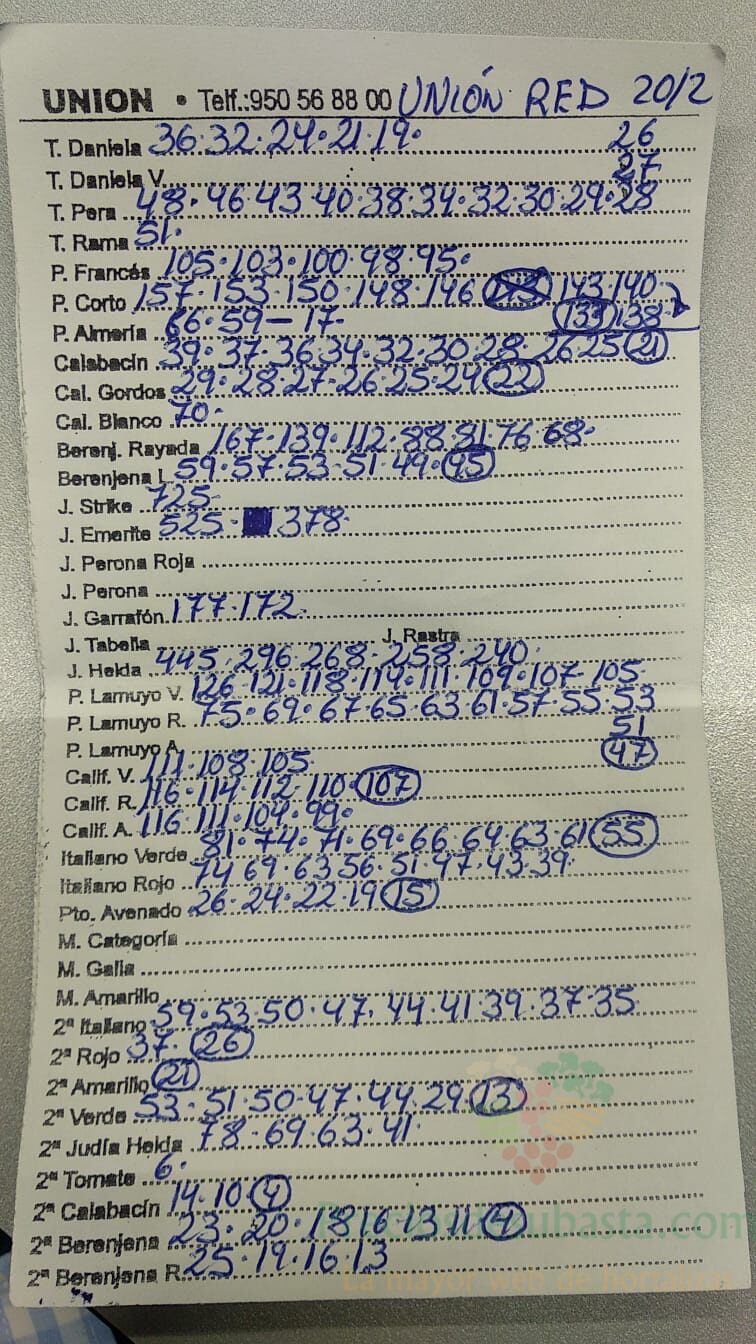 UNION • Telf.:950 56 88 00 UNIÓN RED 20/2
T. Daniela 36·32·24·21·19· 26
T. Daniela V. 27
T. Pera 48·46·43·40·38·34·32·30·29·28
T. Rama 51·
P. Francés 105·103·100·98·95·
P. Corto 157·153·150·148·146 143·140
P. Almería 66·59-17· 138
Calabacín 39·37·36·34·32·30·28·26 25 21
Cal. Gordos 29·28·27·26·25·24 22
Cal. Blanco 70·
Berenj. Rayada 167·139·112·88·81·76·68·
Berenjena L 59·57·53·51·49·45
J. Strike 725·
J. Emerite 525· 378·
J. Perona Roja
J. Perona
J. Garrafón 177·172
J. Tabella J. Rastra
J. Helda 445·296·268·258·240·
P. Lamuyo V. 126·121·118·114·111·109·107·105
P. Lamuyo R. 75·69·67·65·63·61·57·55·53
51
P. Lamuyo A. 47
Calif. V. 111·108·105
Calif. R. 116·114·112·110·107
Calif. A. 116·111·104·99·
Italiano Verde 81·74·71·69·66·64·63·61 55
Italiano Rojo 74 69·63 56·51·47·43·39·
Pto. Avenado 26·24·22·19 15
M. Categoría
M. Galia
M. Amarillo
2ª Italiano 59·53·50·47·44·41·39·37·35
2ª Rojo 37· 26
2ª Amarillo 21
2ª Verde 53·51·50·47·44·29· 13
2ª Judía Helda 78·69·63·41·
2ª Tomate 6·
2ª Calabacín 14·10· 4
2ª Berenjena 23·20·18 16·13·11 4
2ª Berenjena R. 25·19·16·13